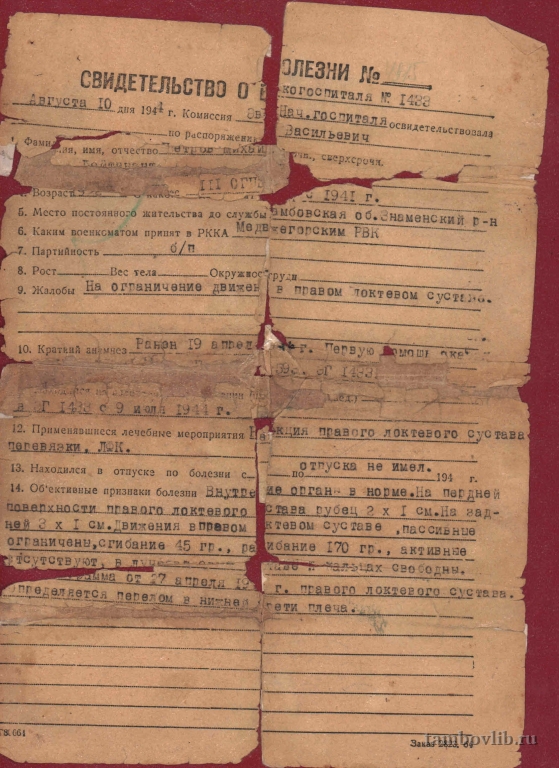 СВИДЕТЕЛЬСТВО О БОЛЕЗНИ №
Августа 10 дня 1944 г. Комиссия Эв когоспиталя № 1433
по распоряжени Нач.госпиталя освидетельствовала
1. Фамилия, имя, отчество Петров Михаи Васильевич
сверхсрочн.
4. Возраст с 1941 г.
5. Место постоянного жительства до службы амбовская об.Знаменский р-н
6. Каким военкоматом принят в РККА Медв жегорским РВК
7. Партийность б/п
8. Рост Вес тела Окружность груди
9. Жалобы На ограничение движен в правом локтевом суставе.
10. Краткий анамнез Ранен 19 апрел г. Первую помощь
ЭГ 1433
в ЭГ 1433 с 9 июля 1944 г.
12. Применявшиеся лечебные мероприятия кция правого локтевого сустава
перевязки, ЛФК.
13. Находился в отпуске по болезни с по отпуска не имел. 194 г.
14. Объективные признаки болезни Внутре ие органы в норме.На пердней
поверхности правого локтевого става рубец 2 х I см.На зад-
ней 3 х I см.Движения в правом ктевом суставе ,пассивные
ограничены,сгибание 45 гр., ра ибание 170 гр., активные
отсутствуют, в пальцах свободны.
мма от 27 апреля 19 г. правого локтевого сустава.
определяется перелом в нижней ети плеча.
Заказ
tambovlib.ru